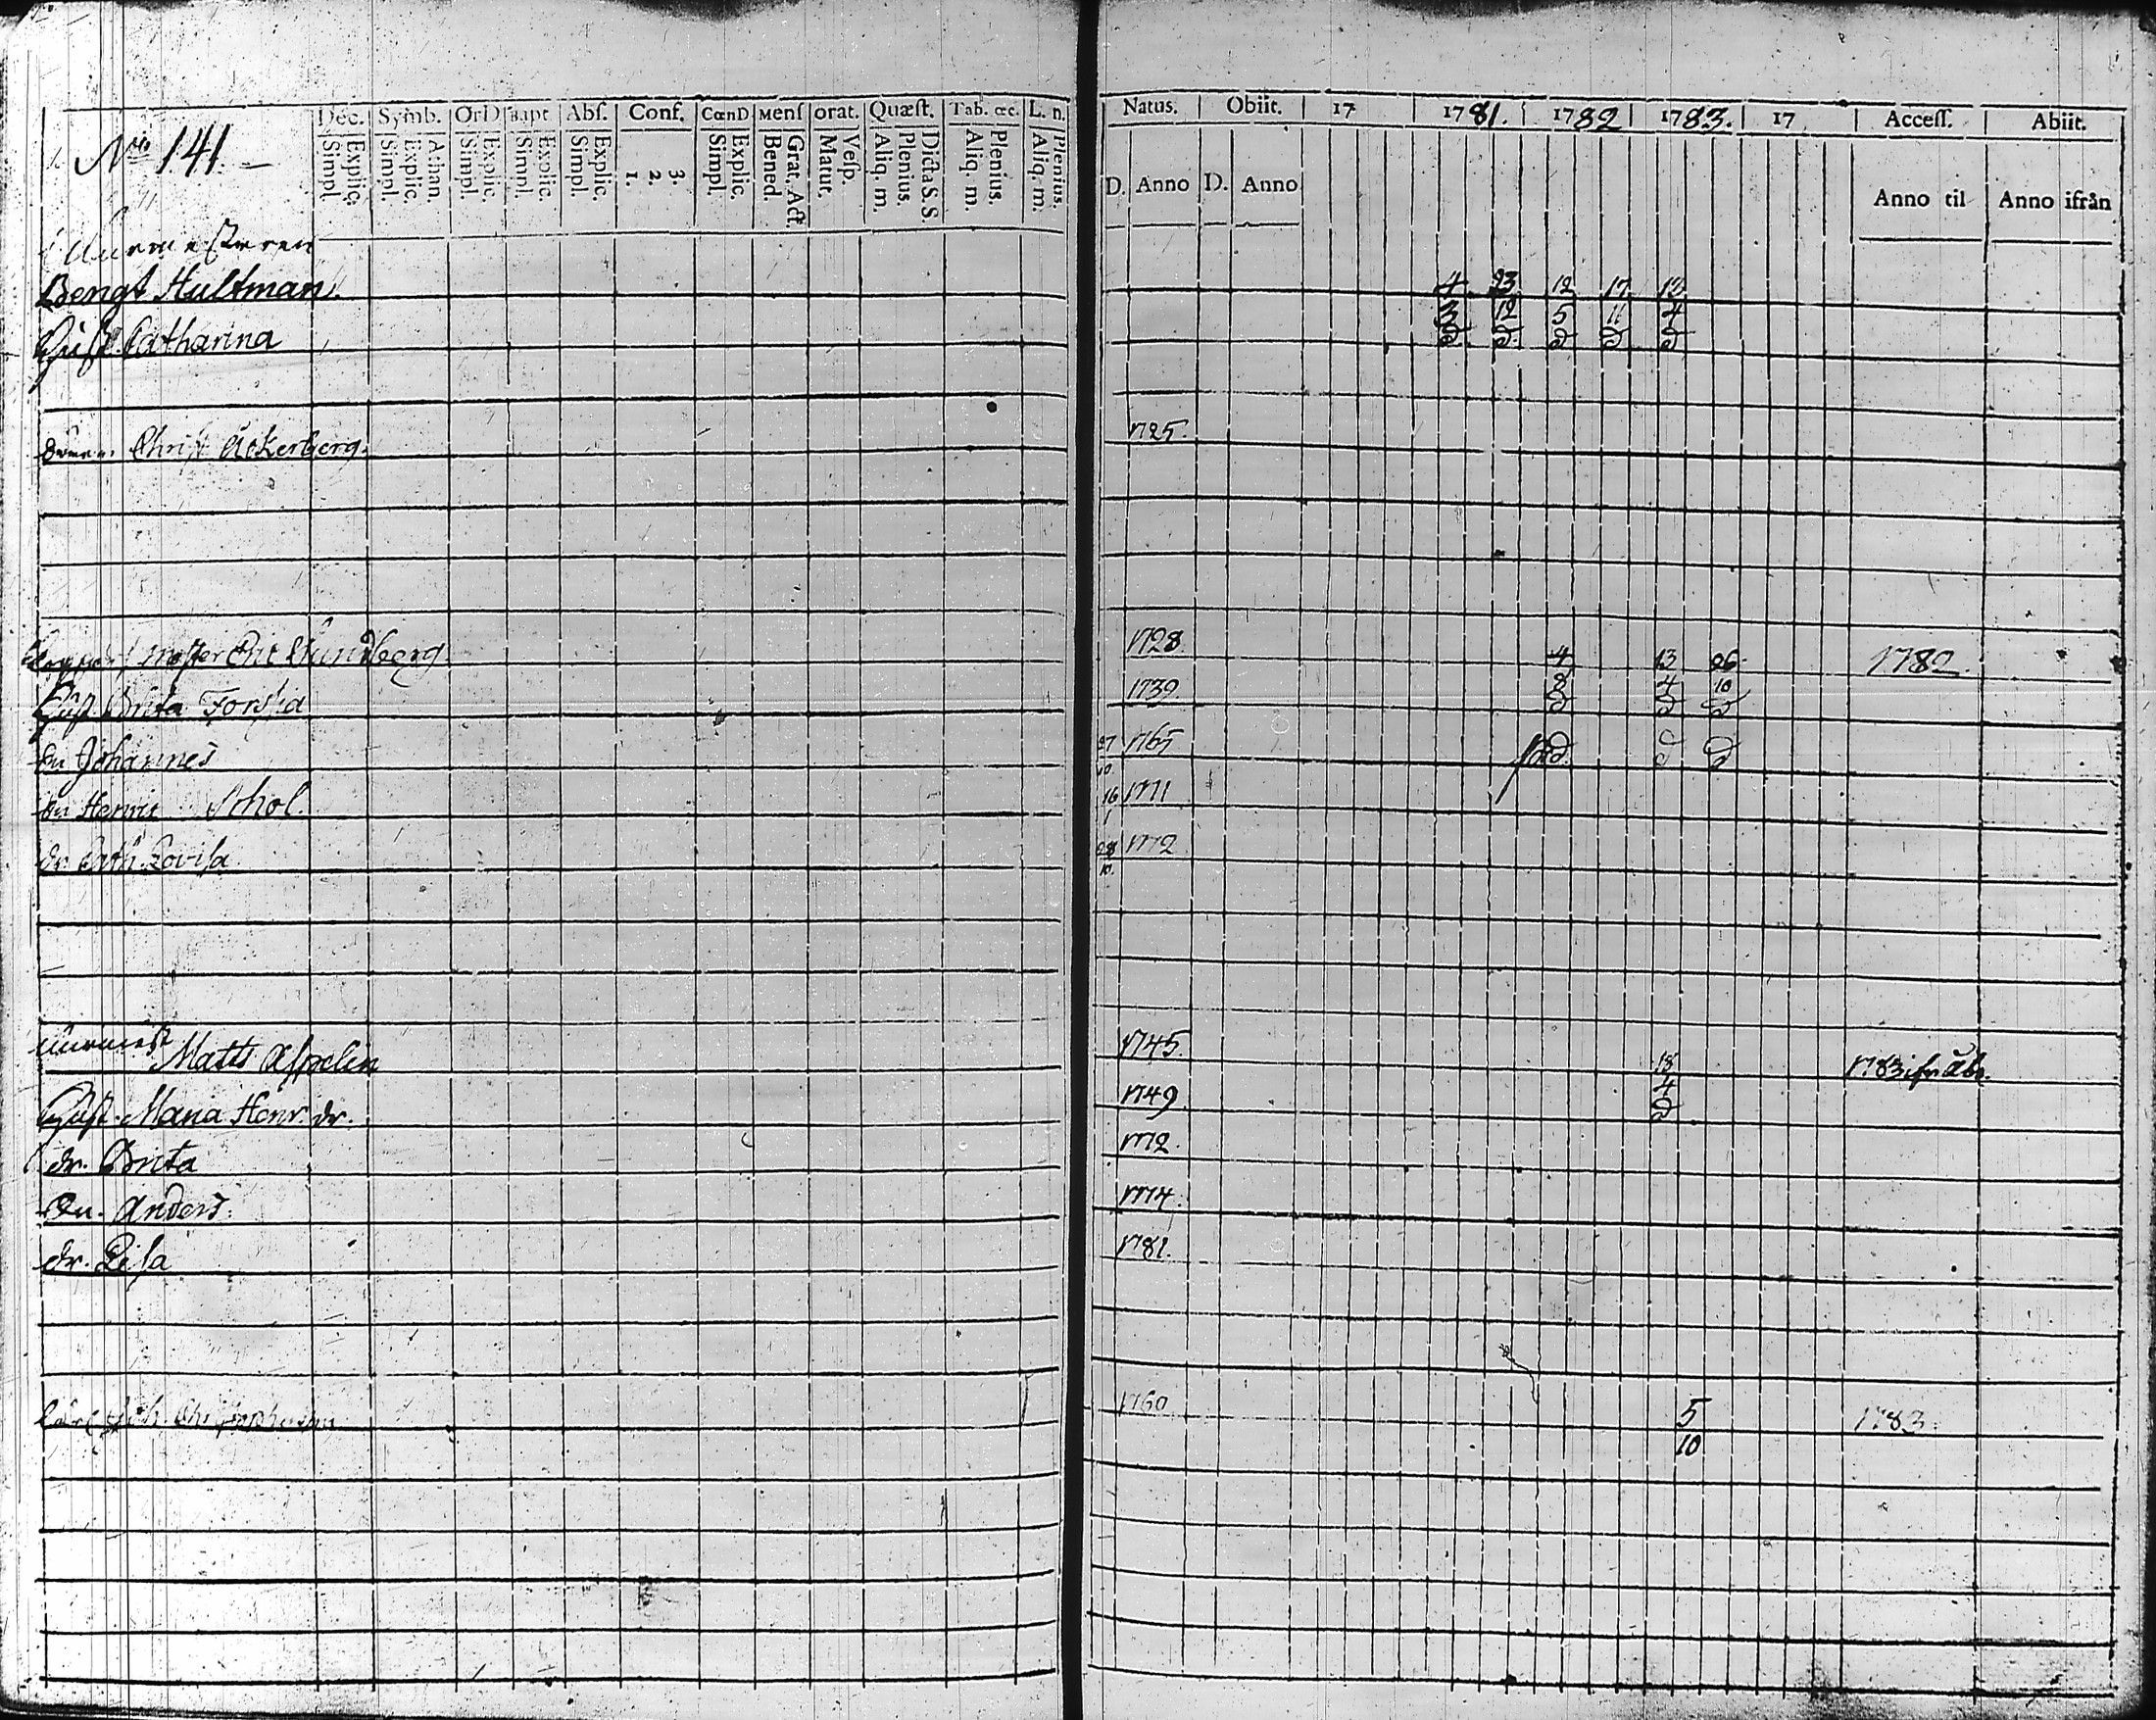 Dec. Symb. OrD Bapt Abſ. Conf. CœnD Menſ orat. Quæſt. Tab. œc. L. n. Natus. Obiit. 17 1781. 1782 1783. 17 Acceſſ. Abiit.
No 141.
Simpl. Explic. Simpl. Explic. Athan. Simpl. Explic. Simpl. Explic. Simpl. Explic. 1. 2. 3. Simpl. Explic. Bened. Grat. Act. Matut. Veſp. Aliq. m. Plenius. Dicta S. S. Aliq. m. Plenius. Aliq. m. Plenius. D. Anno D. Anno Anno til Anno ifrån
Murmesteren
Bengt Hultman. 4/3 23/12 12/5 17/11 13/4
Hust. Catharina
Christ Åckerberg. 1725.
mester Eric Lundberg 1728 4/8 13/4 26/10 1782
Hust Brita Forssa 1739
Johannes 27/10 1765
Henric Schol. 16/1 1771
dr. Cath. Lovisa 28/10 1772
Murmest Matts Asspelin 1745. 18/4 1783 ifr Åbo.
Hust. Maria Henr. dr. 1749
dr. Brita 1772.
Anders. 1774.
dr. Lisa 1781.
1760 5/10 1783.